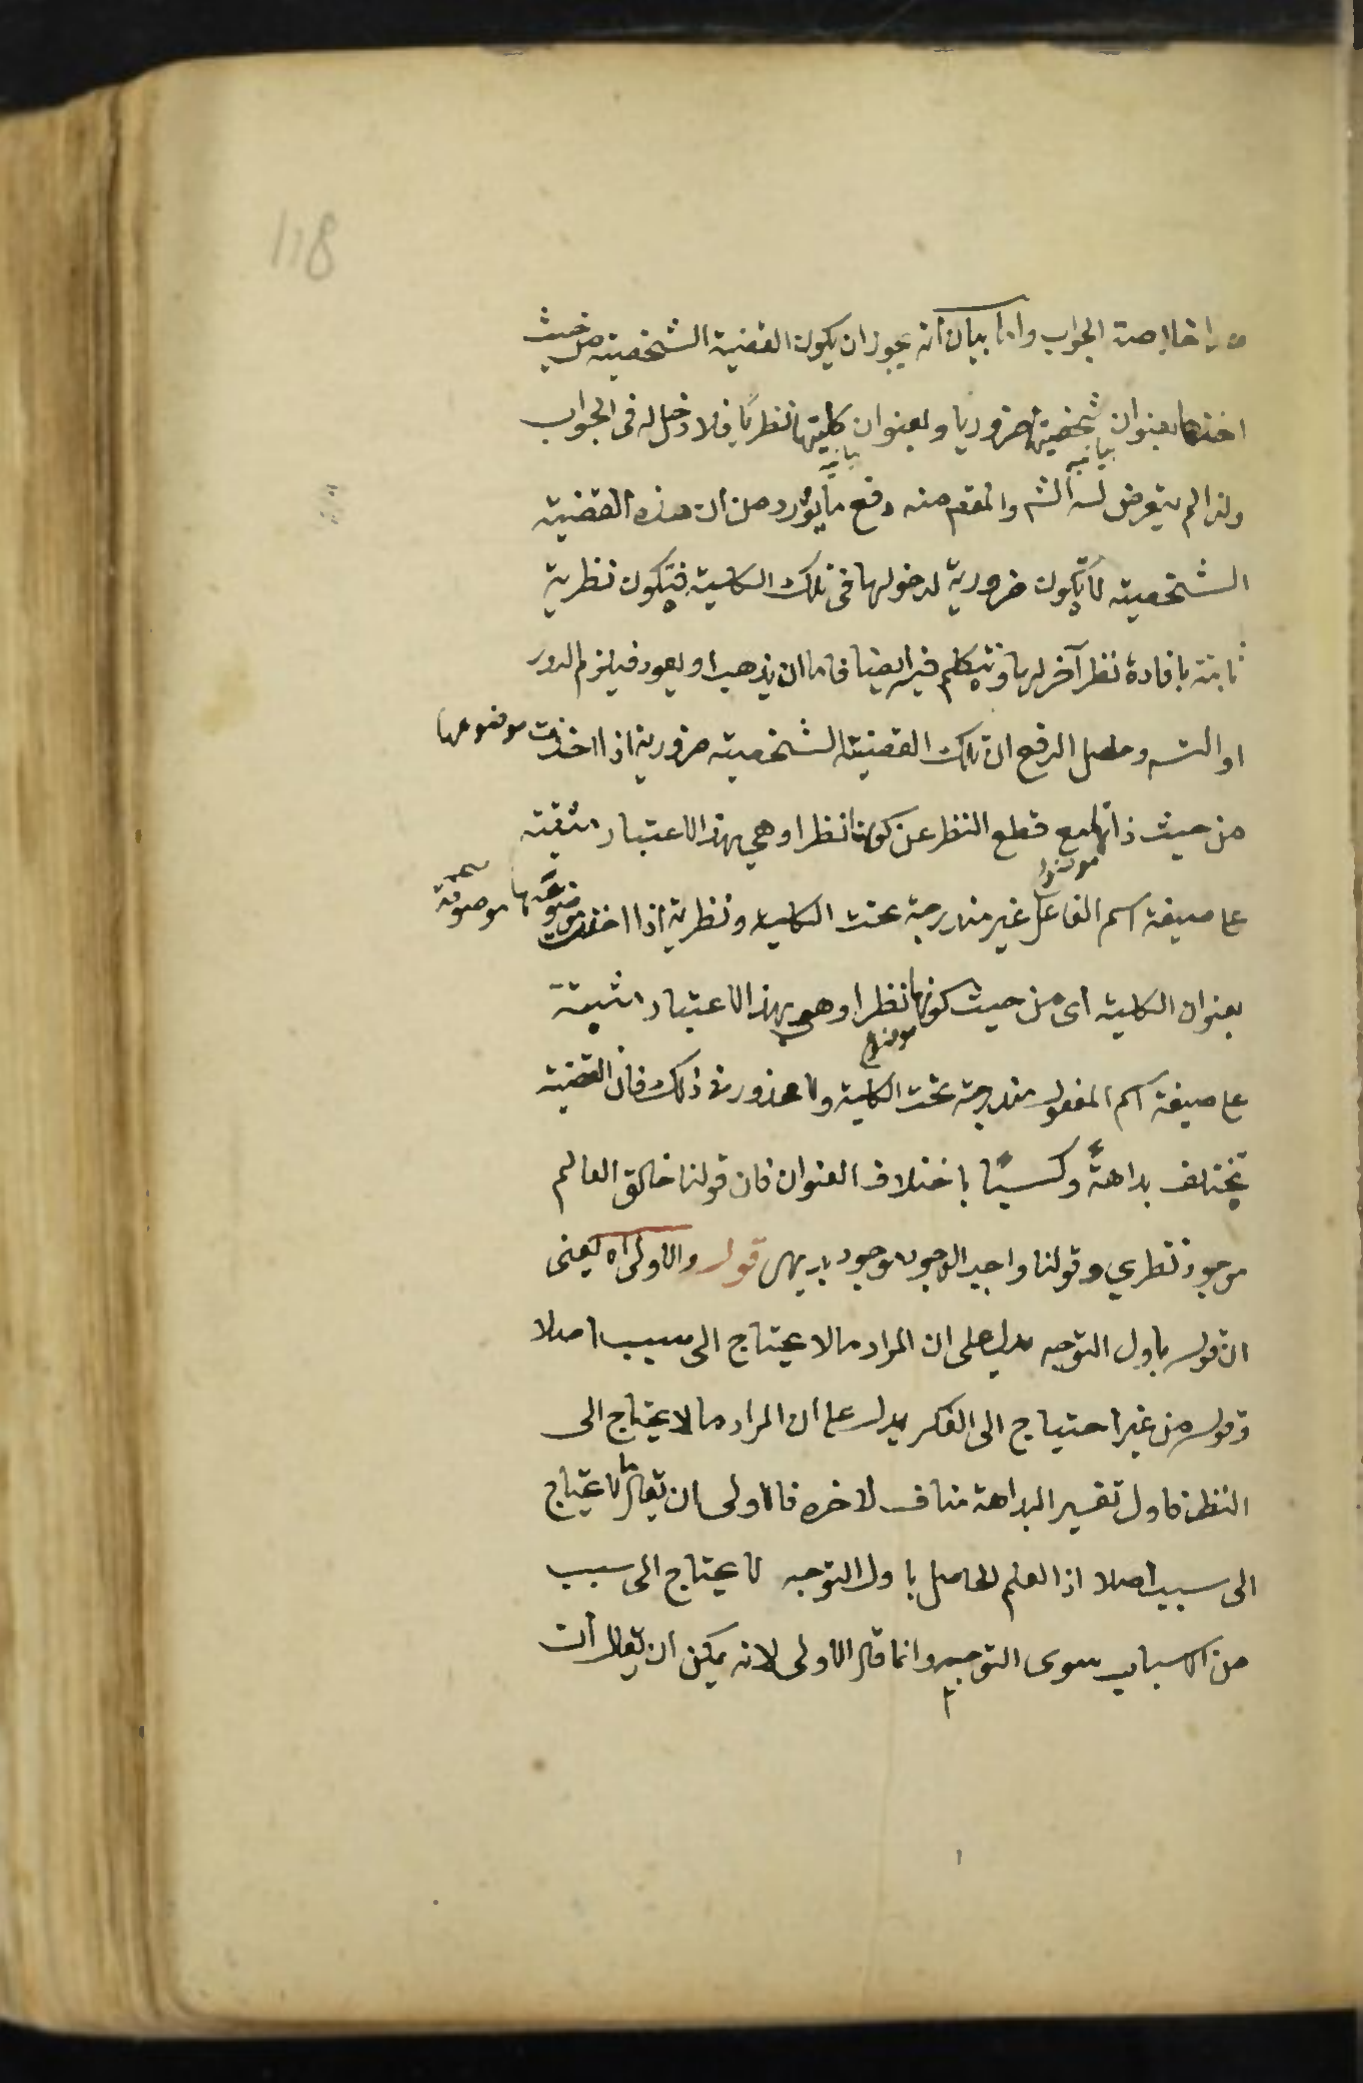 118
خلاصة الجواب واما بيان انه يجوز ان يكون القضية الشخصية من حيث
اخذها بعنوان شخصيتها ضروريا وبعنوان كليتها نظريا فلا دخل له فى الجواب
ولذا لم يتعرض له الشـ والمقصم منه دفع ما يورد من ان هذه القضية
الشخصية لا تكون ضرورية لدخولها فى تلك الكلية فتكون نظرية
ثابتة بافادة نظر آخر لها ونتكلم فيه ايضا فاما ان يذهب او يعود فيلزم الدور
او التسـ وحاصل الدفع ان تلك القضية الشخصية ضرورية اذا اخذت موضوعها
من حيث ذاتها مع قطع النظر عن كونها نظرا وهي بهذا الاعتبار مثبتة
على صيغة اسم الفاعل غير مندرجة تحت الكلية ونظرية اذا اخذت موضوعها موصوفة
بعنوان الكلية اى من حيث كونها نظرا وهى بهذا الاعتبار مثبتة
على صيغة اسم المفعول مندرجة تحت الكلية ولا محذور فى ذلك فان القضية
تختلف بداهةً وكسبًا باختلاف العنوان فان قولنا خالق العالم
موجود نظري وقولنا واجب الوجود موجود بديهى قوله والاولى اه يعنى
ان قوله باول التوجه يدل على ان المراد ما لا يحتاج الى سبب اصلا
وقوله من غير احتياج الى الفكر يدل على ان المراد ما لا يحتاج الى
النظر فاول تفسير البداهة مناف لاخره فالاولى ان يقال ما لا يحتاج
الى سبب اصلا اذ العلم الحاصل باول التوجه لا يحتاج الى سبب
من الاسباب سوى التوجه وانما قال الاولى لانه يمكن ان يقال ان